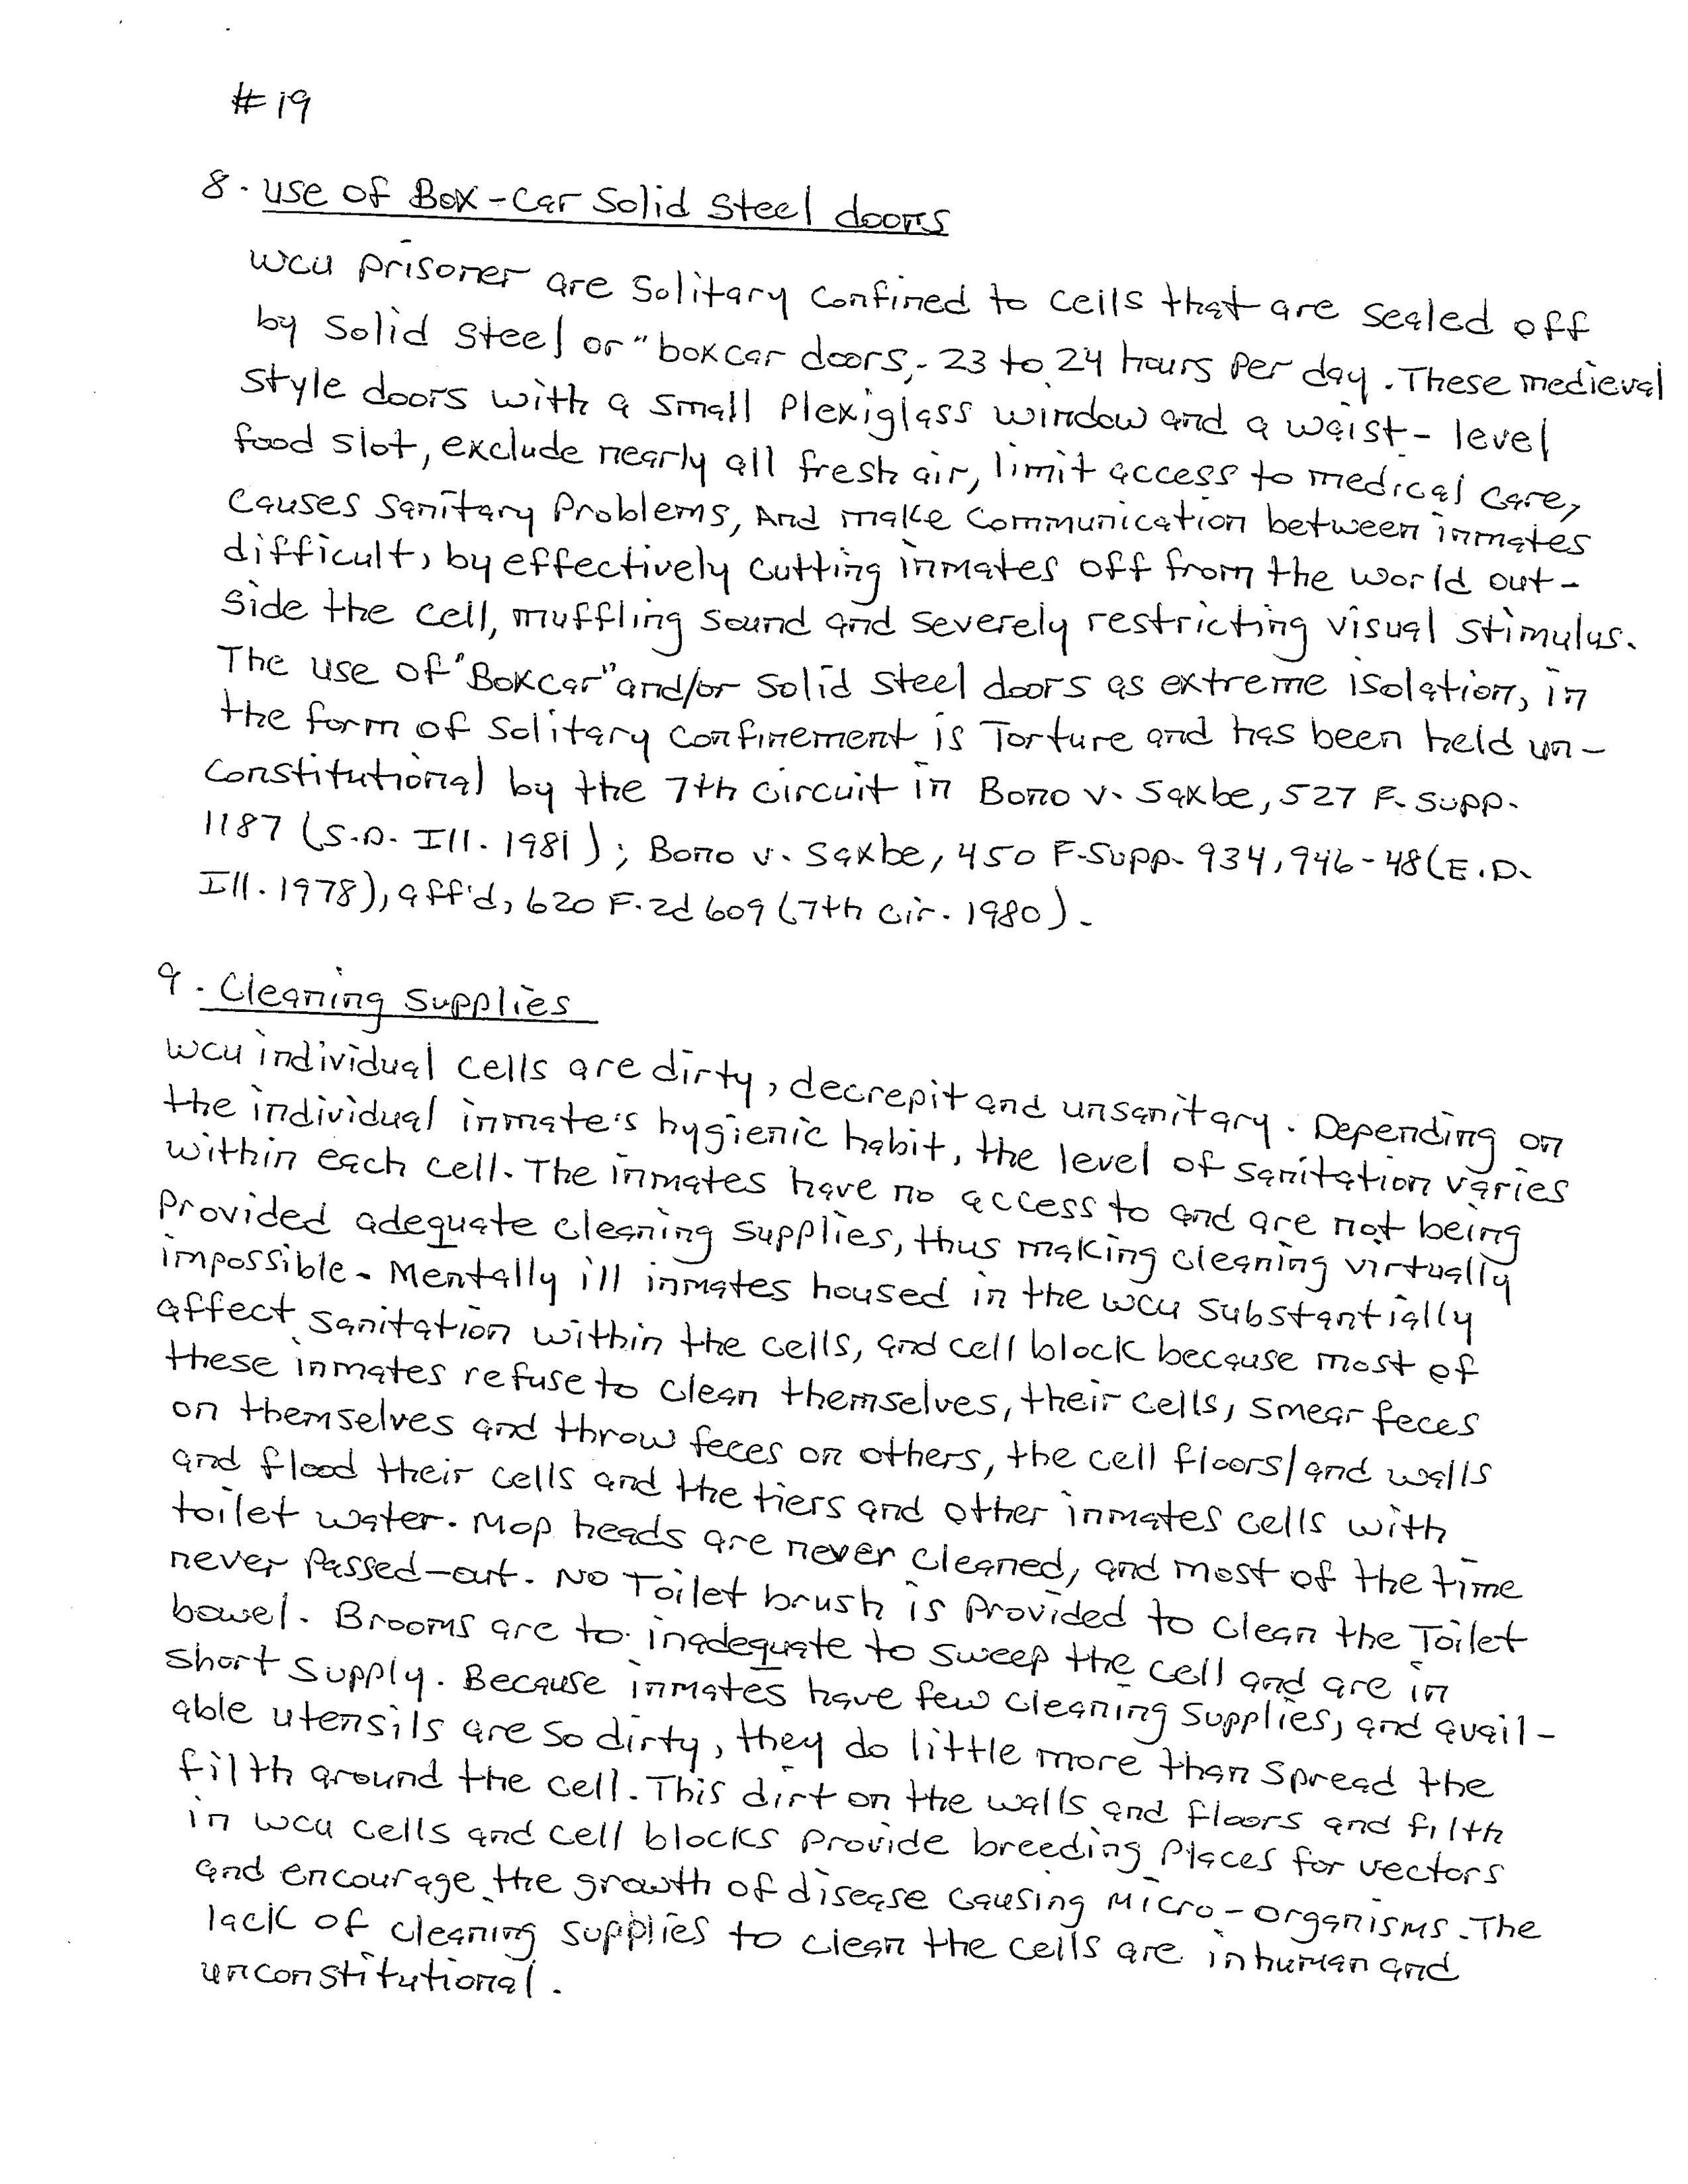 #19
8. Use of Box-Car Solid Steel doors
WCU prisoner are Solitary Confined to Cells that are sealed off
by Solid Steel or "boxcar doors, - 23 to 24 hours Per day. These medieval
Style doors with a small Plexiglass window and a waist-level
food slot, exclude nearly all fresh air, limit access to medical Care,
Causes Sanitary Problems, And make Communication between inmates
difficult, by effectively Cutting inmates off from the world out-
Side the Cell, muffling sound and severely restricting visual stimulus.
The use of "Boxcar" and/or Solid Steel doors as extreme isolation, in
the form of Solitary Confinement is Torture and has been held un-
Constitutional by the 7th Circuit in Bono v. Saxbe, 527 F. Supp.
1187 (S.D. Ill. 1981); Bono v. Saxbe, 450 F. Supp. 934, 946-48 (E.D.
Ill. 1978), aff'd, 620 F.2d 609 (7th Cir. 1980).
9. Cleaning Supplies
WCU individual Cells are dirty, decrepit and unsanitary. Depending on
the individual inmate's hygienic habit, the level of sanitation varies
within each cell. The inmates have no access to and are not being
Provided adequate cleaning supplies, thus making cleaning virtually
impossible. Mentally ill inmates housed in the WCU Substantially
affect sanitation within the cells, and cell block because most of
these inmates refuse to clean themselves, their cells, smear feces
on themselves and throw feces on others, the cell floors/and walls
and flood their cells and the tiers and other inmates cells with
toilet water. Mop heads are never cleaned, and most of the time
never Passed-out. No Toilet brush is Provided to Clean the Toilet
bowel. Brooms are to inadequate to sweep the cell and are in
short supply. Because inmates have few cleaning supplies, and avail-
able utensils are so dirty, they do little more than spread the
filth around the cell. This dirt on the walls and floors and filth
in WCU cells and cell blocks Provide breeding Places for vectors
and encourage the growth of disease causing micro-organisms. The
lack of cleaning supplies to clean the cells are inhuman and
unconstitutional.